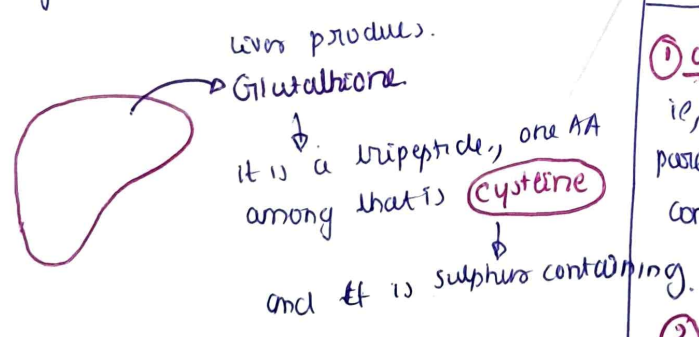 liver produces.
Glutathione
it is a tripeptide, one AA
among that is cysteine
and it is sulphur containing.
① 
ie,
②